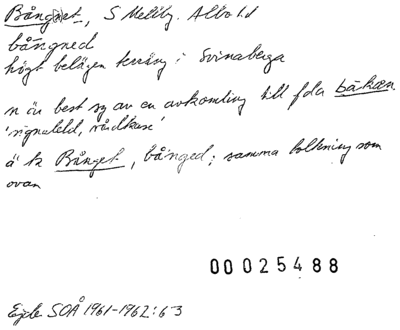 Bångnet, S Mellby. Albo hd
bångned
högt belägen terräng i Svinaberga
n är best sg av en avkomling till fda båkan
'signaleld, vårdkase'
ä tr Bånget, bånged; samma tolkning som
ovan
00025488
SOÅ 1961-1962:63